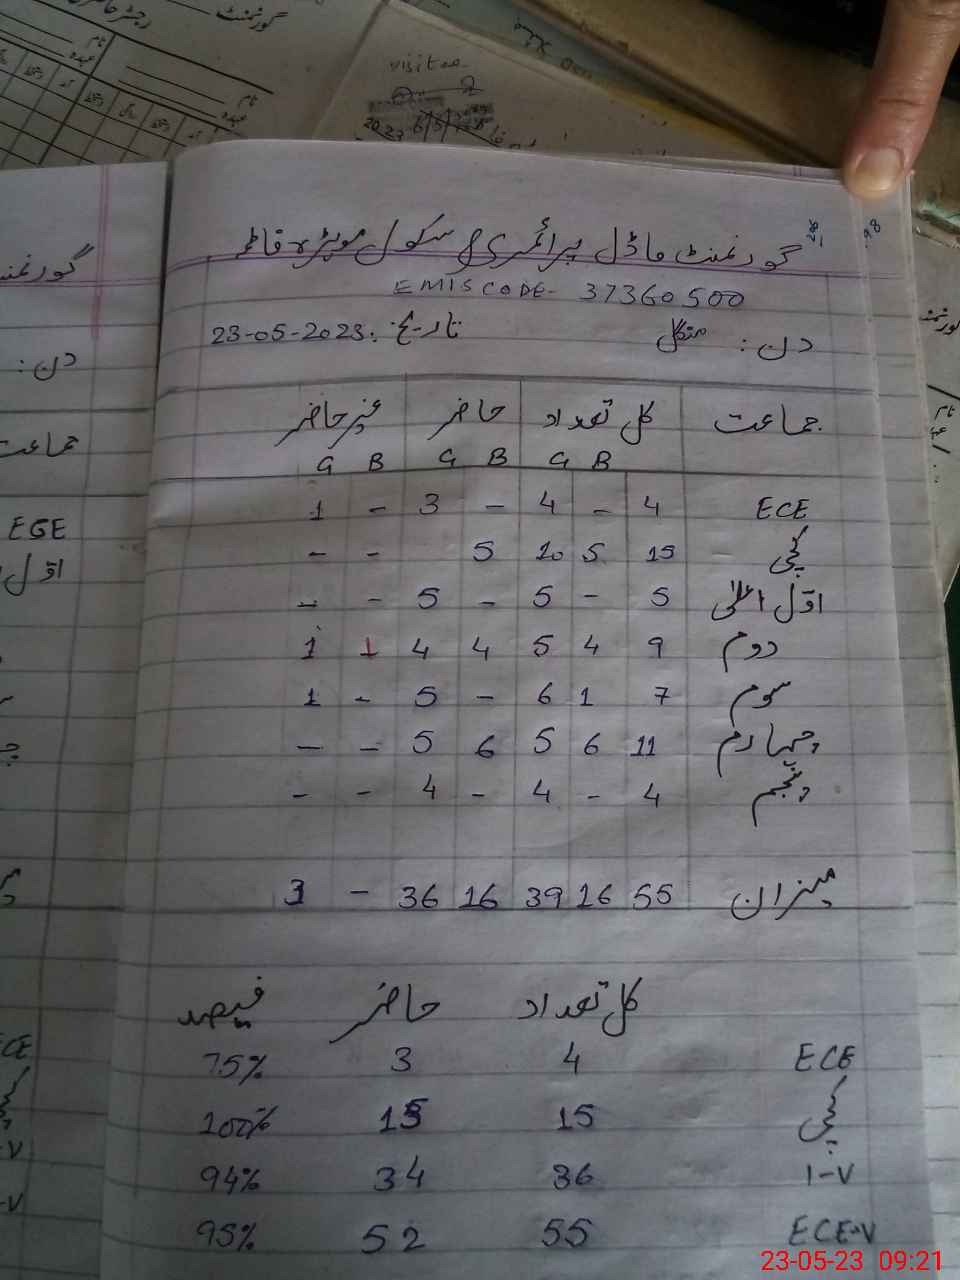 visitor
گورنمنٹ ماڈل پرائمری سکول موہڑہ قاطر
EMIS CODE- 37360500
دن: منگل تاریخ: 23-05-2023
جماعت کل تعداد حاضر غیر حاضر
B G B G B G
ECE 4 - 4 - 3 - 1
کچی 15 5 10 5 - -
اوّل اعلٰی 5 - 5 - 5 - -
دوم 9 4 5 4 4 1 1
سوم 7 1 6 - 5 - 1
چہارم 11 6 5 6 5 - -
پنجم 4 - 4 - 4 - -
میزان 55 16 39 16 36 - 3
کل تعداد حاضر فیصد
ECE 4 3 75%
کچی 15 15 100%
I-V 36 34 94%
ECE-V 55 52 95%
گورنمنٹ
دن:
جماعت
ECE
اوّل
23-05-23 09:21